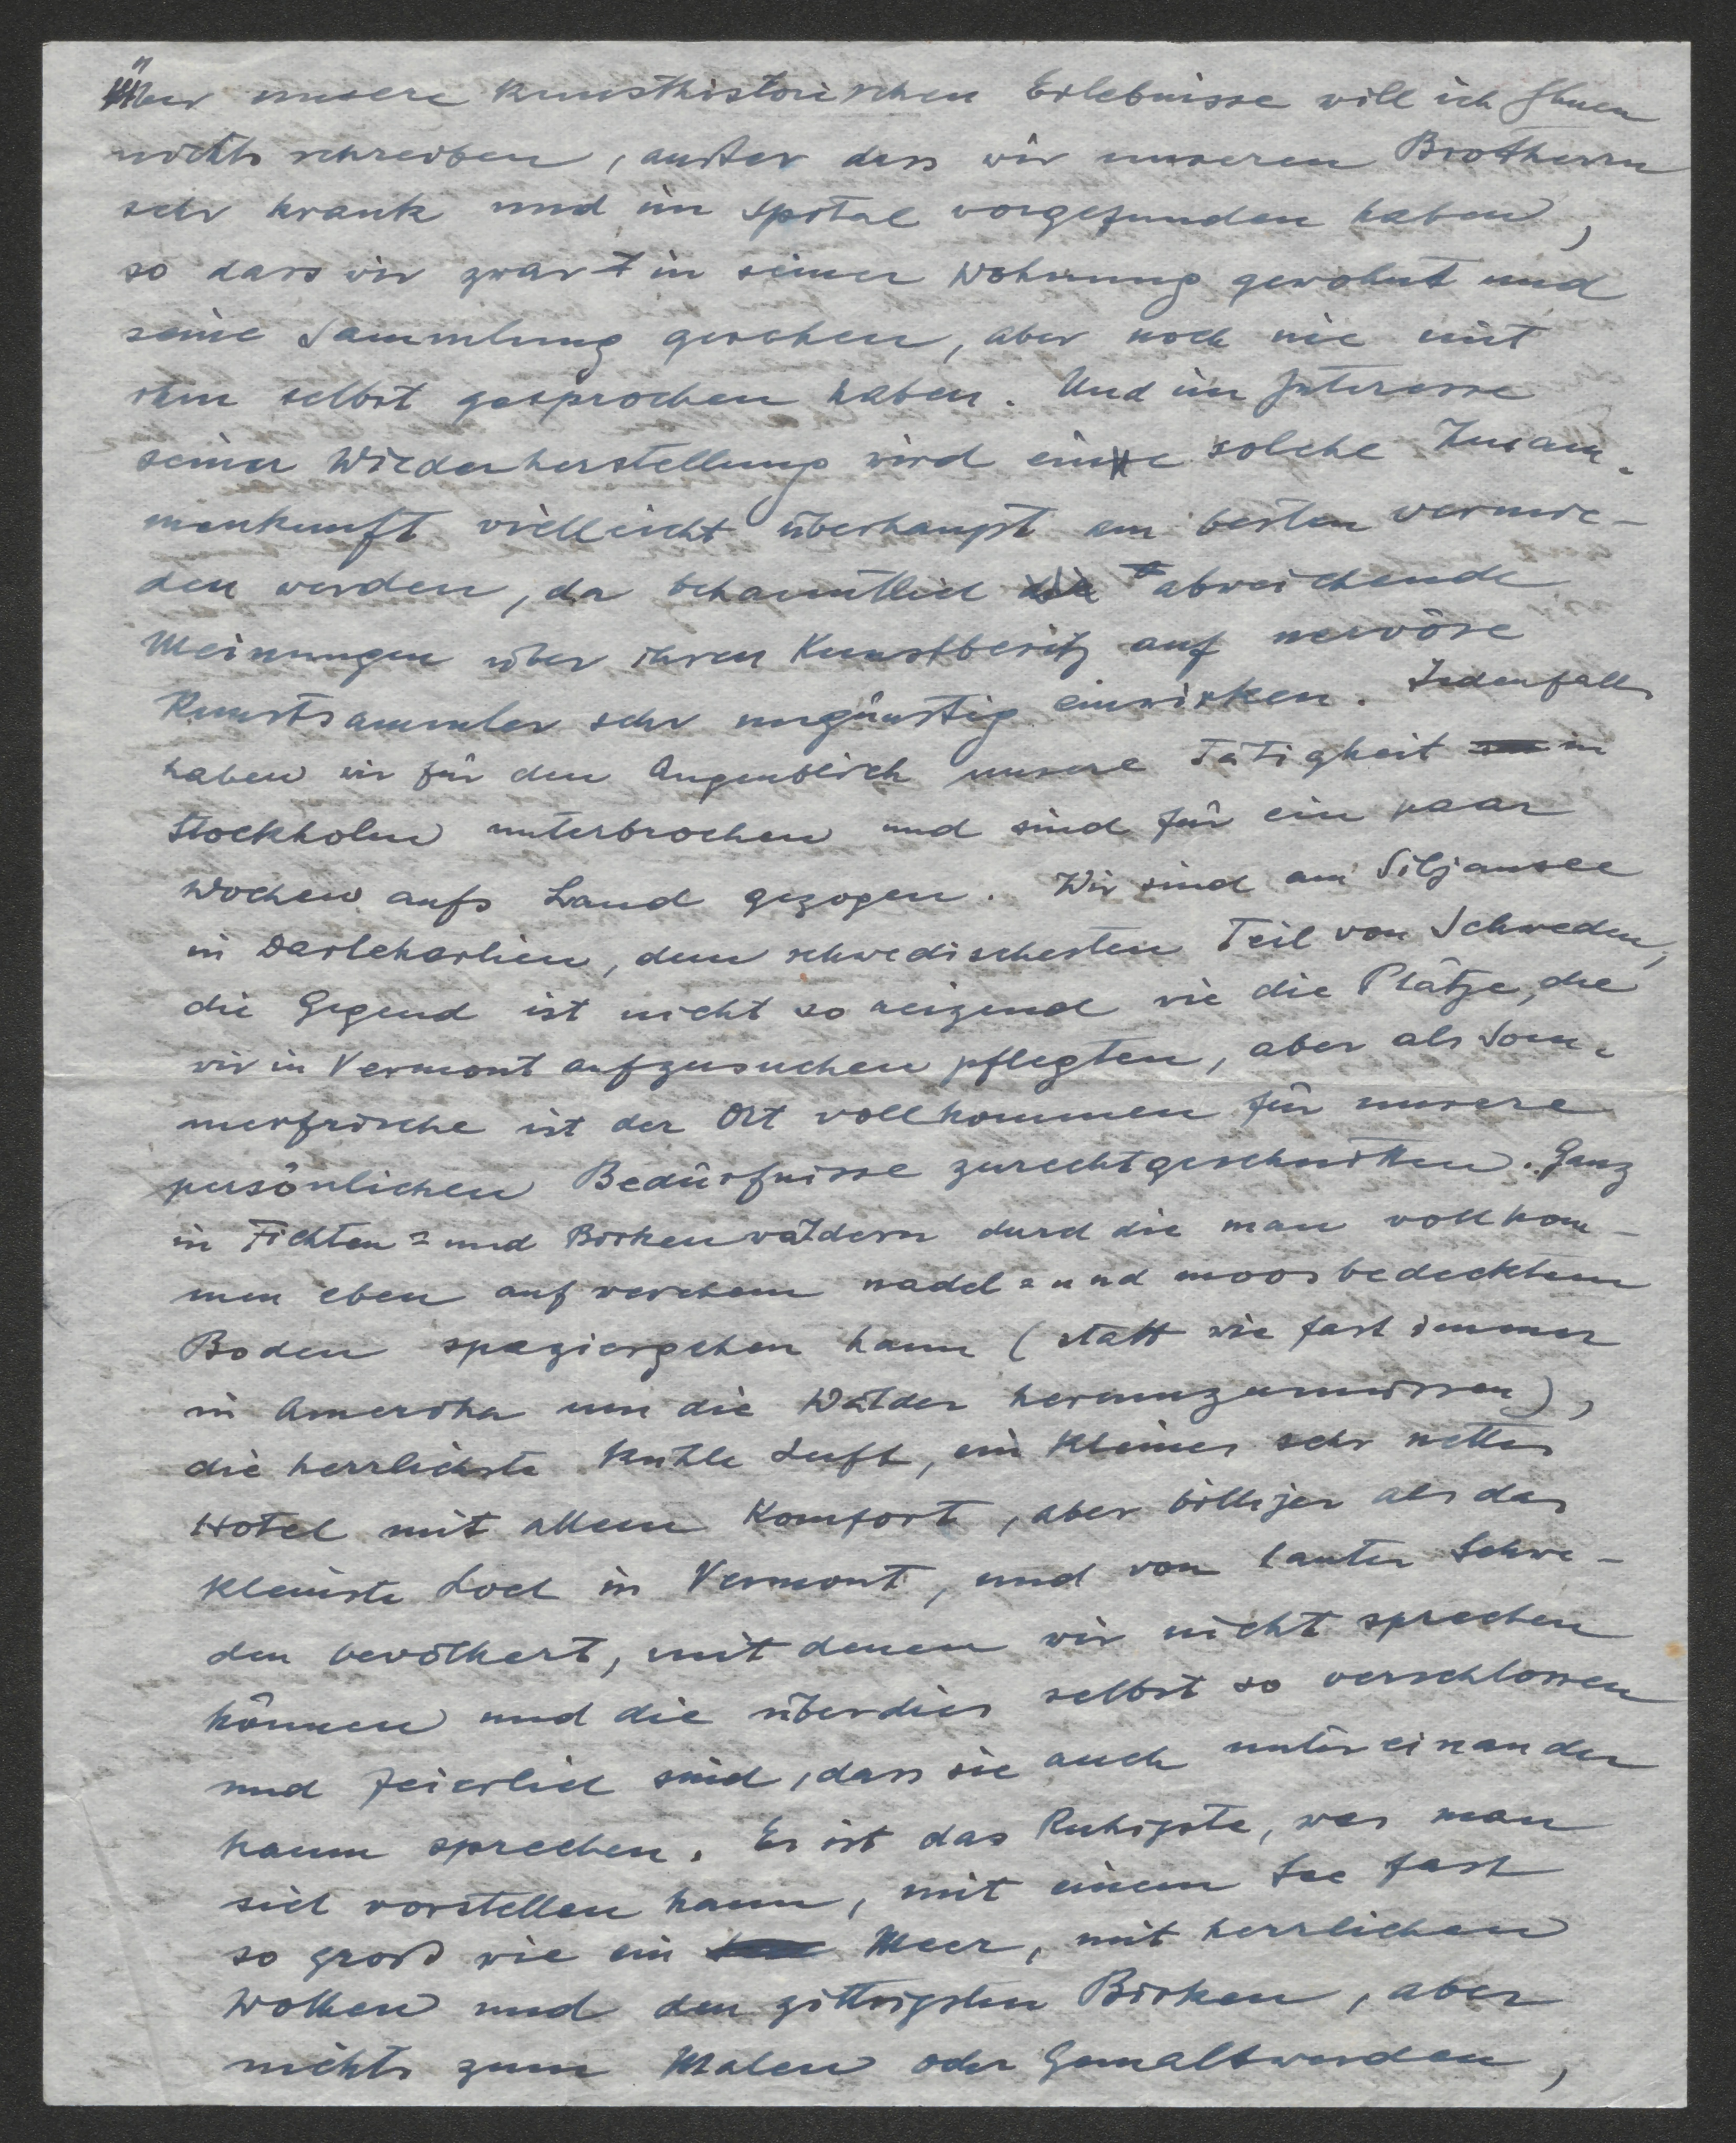 Über unsere kunsthistorischen Erlebnisse will ich Ihnen
nichts schreiben, außer dass wir unseren Brotherrn
sehr krank und im Spital vorgefunden haben,
so dass wir zwar in seiner Wohnung gewohnt und
seine Sammlung gesehen, aber noch nie mit
ihm selbst gesprochen haben. Und im Interesse
seiner Wiederherstellung wird eine solche Zusam-
menkunft vielleicht überhaupt am besten vermie-
den werden, da bekanntlich abweichende
Meinungen über ihren Kunstbesitz auf nervöse
Kunstsammler sehr ungünstig einwirken. Jedenfalls
haben wir für den Augenblick unsere Tätigkeit in
Stockholm unterbrochen und sind für ein paar
Wochen aufs Land gezogen. Wir sind am Siljansee
in Darlekarlien, dem schwedischesten Teil von Schweden,
die Gegend ist nicht so reizend wie die Plätze, die
wir in Vermont aufzusuchen pflegten, aber als Som-
merfrische ist der Ort vollkommen für unsere
persönlichen Bedürfnisse zurechtgeschnitten. Ganz
in Fichten= und Birkenwäldern durch die man vollkom-
men eben auf weichem nadel= und moosbedecktem
Boden spazierengehen kann (statt wie fast immer
in Amerika um die Wälder herumzumüssen),
die herrlichste kühle Luft, ein kleines sehr nettes
Hotel mit allem Komfort, aber billiger als das
kleinste Loch in Vermont, und von lauter Schwe-
den bevölkert, mit denen wir nicht sprechen
können und die überdies selbst so verschlossen
und feierlich sind, dass sie auch untereinander
kaum sprechen. Es ist das Ruhigste, was man
sich vorstellen kann, mit einem See fast
so groß wie ein Meer, mit herrlichen
Wolken und den zittrigsten Birken, aber
nichts zum Malen oder Gemaltwerden,